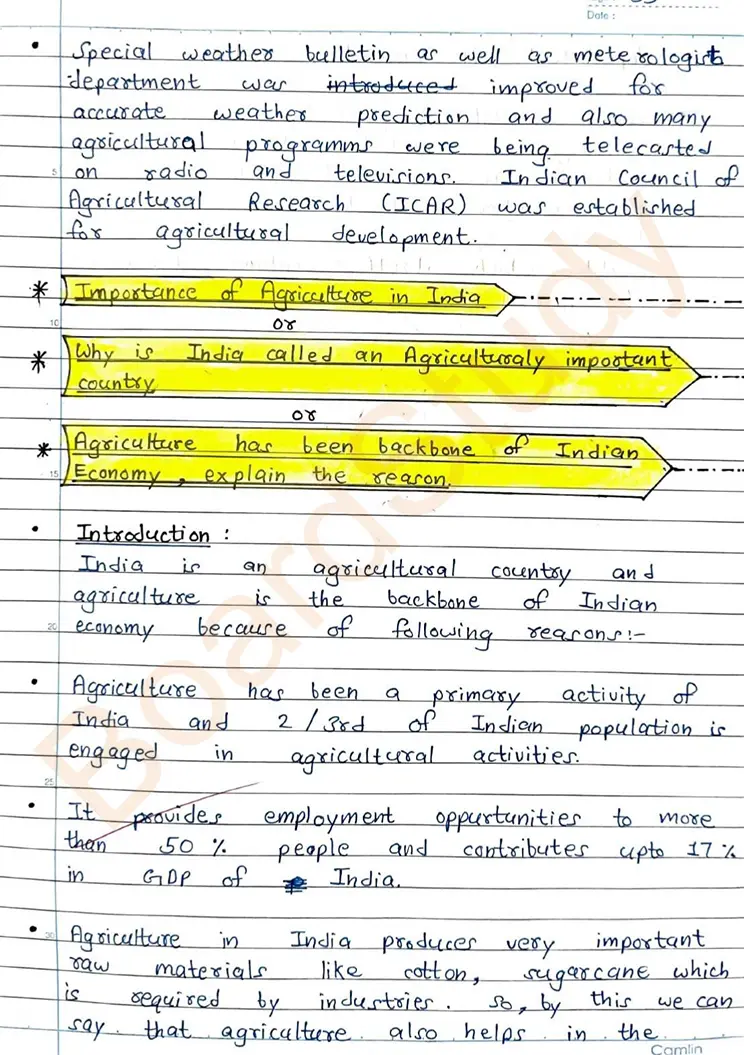 Date :
• Special weather bulletin as well as meterologist
department was introduced improved for
accurate weather prediction and also many
agricultural programms were being telecasted
5 on radio and televisions. Indian Council of
Agricultural Research (ICAR) was established
for agricultural development.
* Importance of Agriculture in India
10 or
* Why is India called an Agriculturaly important
country
or
* Agriculture has been backbone of Indian
15 Economy, explain the reason.
• Introduction :
India is an agricultural country and
agriculture is the backbone of Indian
20 economy because of following reasons:-
• Agriculture has been a primary activity of
India and 2/3rd of Indian population is
engaged in agricultural activities.
25
• It provides employment oppurtunities to more
than 50 % people and contributes upto 17 %
in GDP of India.
• 30 Agriculture in India produces very important
raw materials like cotton, sugarcane which
is required by industries. So, by this we can
say that agriculture also helps in the
Camlin
BoardStudy